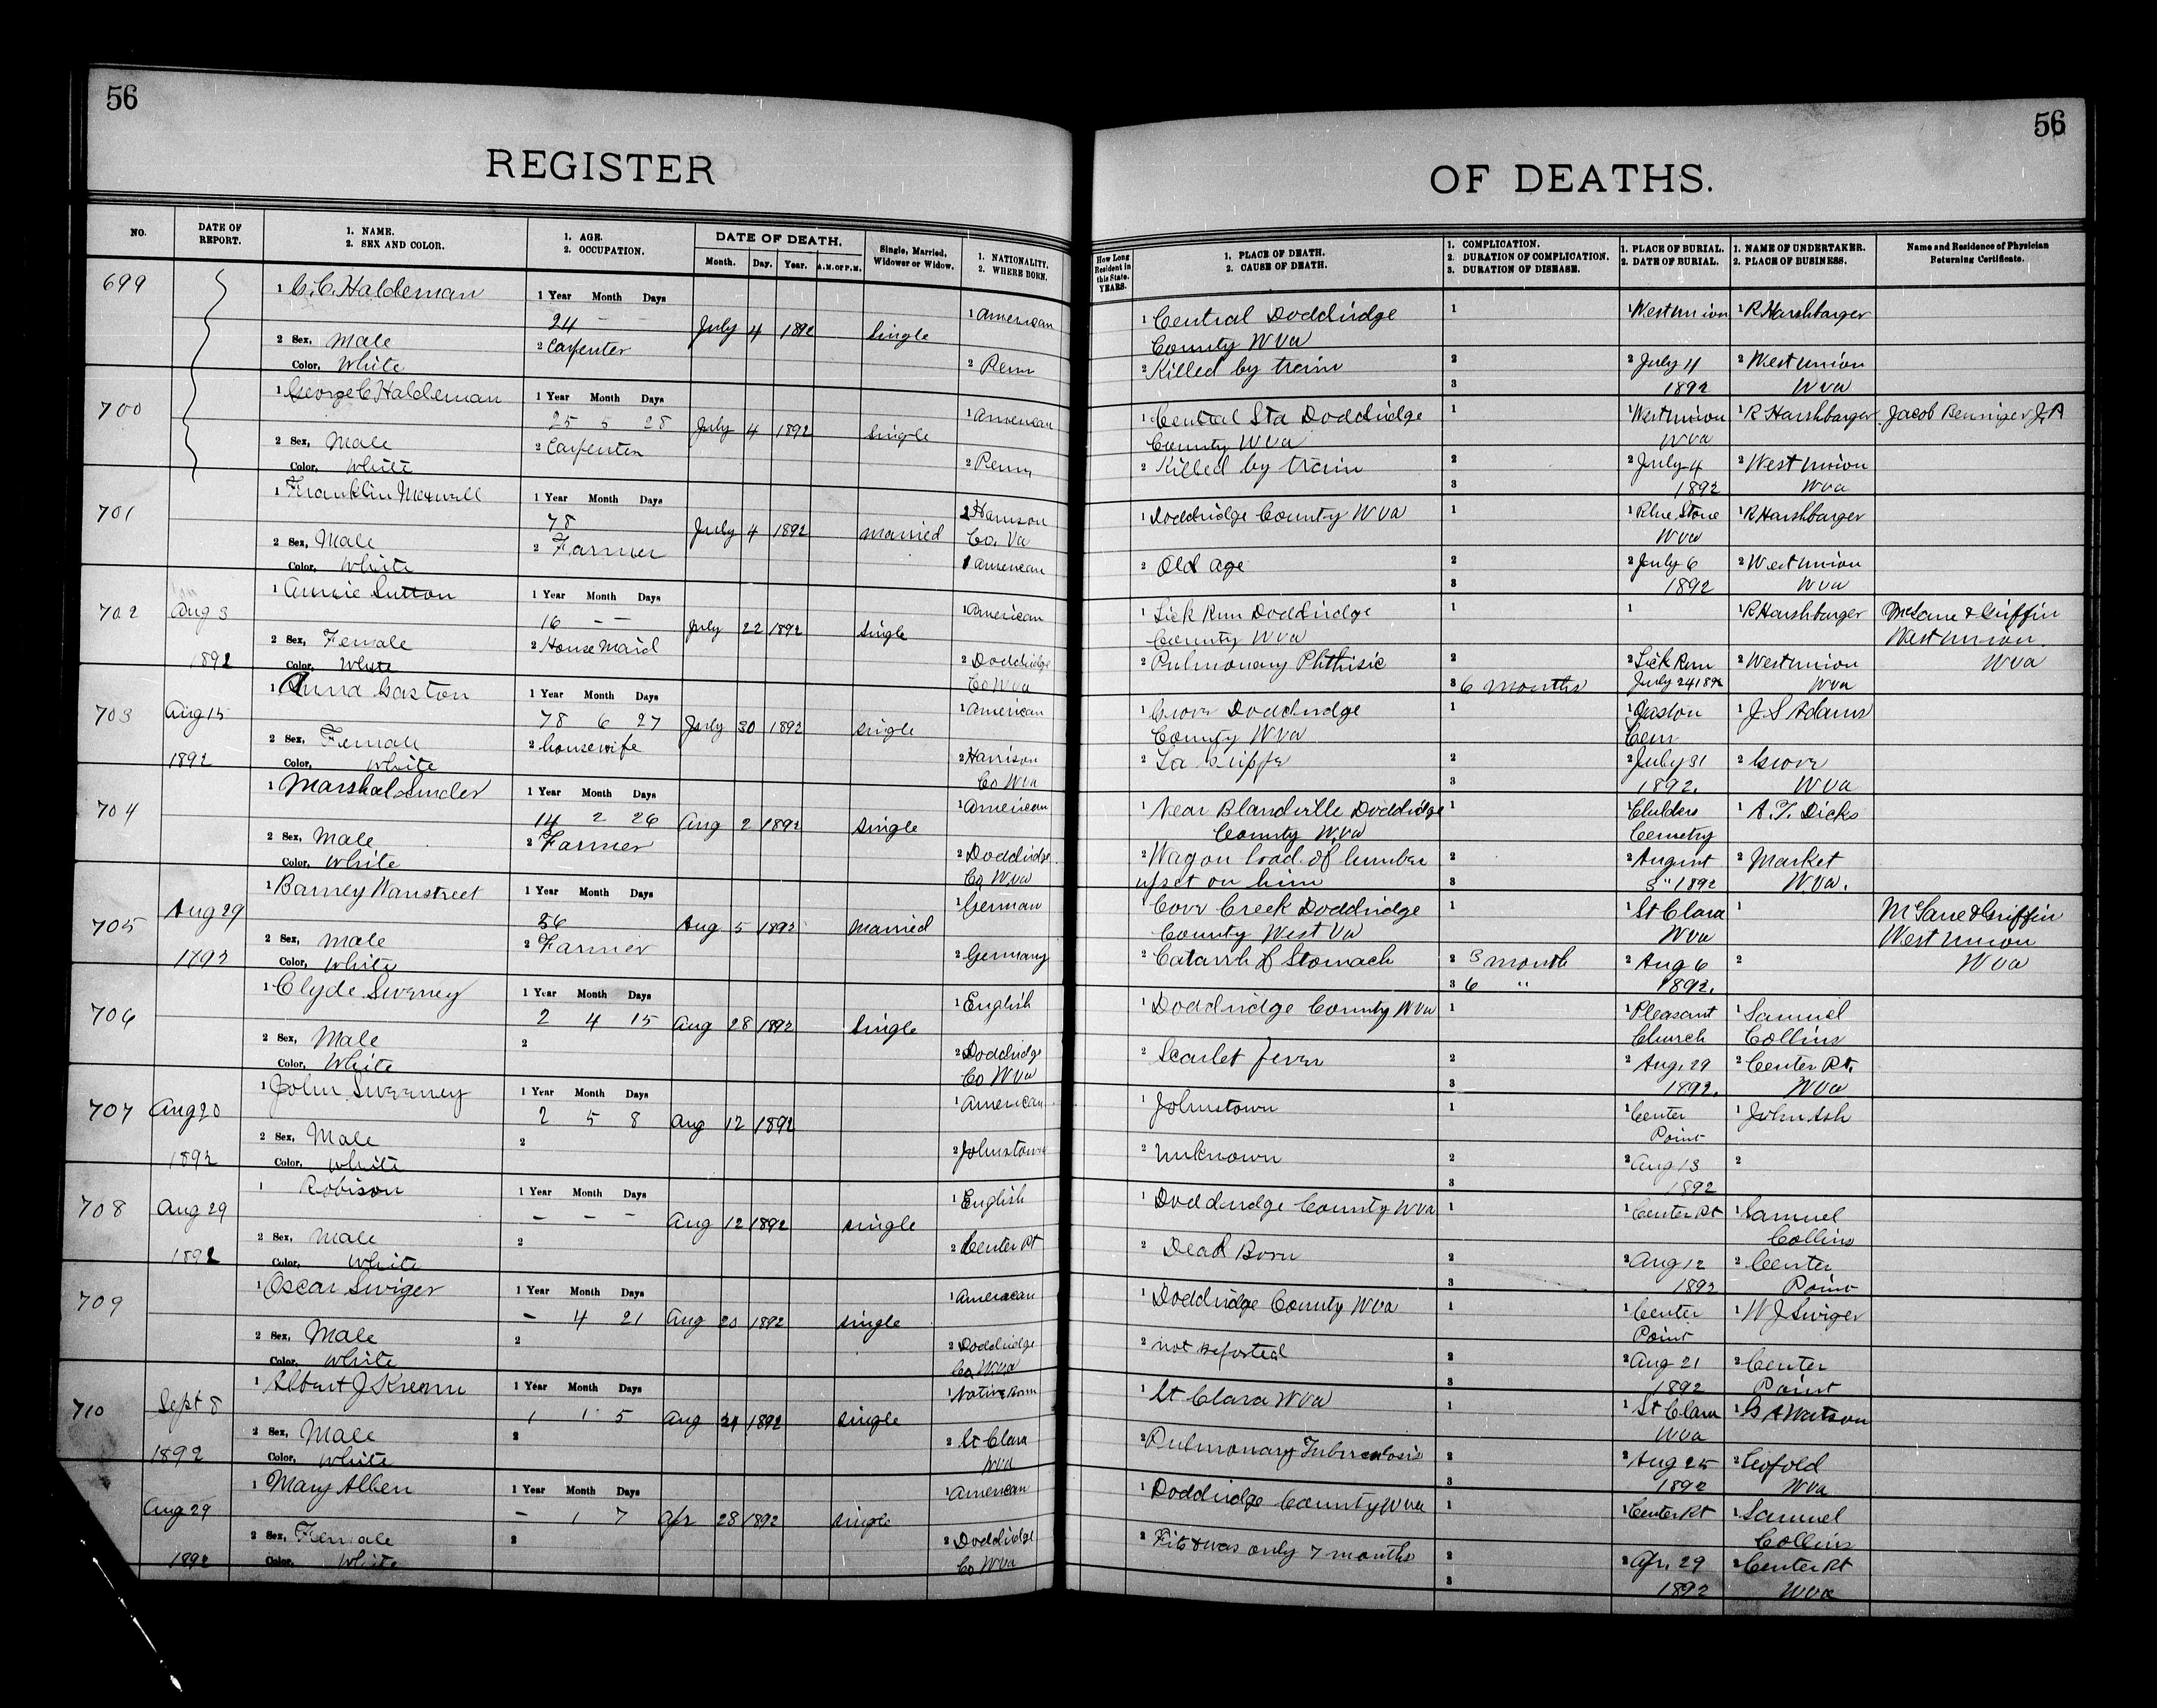 56
56
REGISTER
OF DEATHS.
NO.
DATE OF REPORT.
1. NAME.
2. SEX AND COLOR.
1. AGE.
2. OCCUPATION.
DATE OF DEATH.
Month. Day. Year. A.M. OR P.M.
Single, Married, Widower or Widow.
1. NATIONALITY.
2. WHERE BORN.
How Long Resident in this State. YEARS.
1. PLACE OF DEATH.
2. CAUSE OF DEATH.
1. COMPLICATION.
2. DURATION OF COMPLICATION.
3. DURATION OF DISEASE.
1. PLACE OF BURIAL.
2. DATE OF BURIAL.
1. NAME OF UNDERTAKER.
2. PLACE OF BUSINESS.
Name and Residence of Physician Returning Certificate.
699
1 G. C. Haldeman
1 Year Month Days
24 - -
July 4 1892
Single
1 American
2 Sex, Male
2 Carpenter
Color, White
2 Penn
1 Central Doddridge
County W Va
2 Killed by train
1
2
3
1 West Union
2 July 4
1892
1 R Harshbarger
2 West Union
W Va
700
1 George C Haldeman
1 Year Month Days
25 5 28
July 4 1892
Single
1 American
2 Sex, Male
2 Carpenter
Color, White
2 Penn
1 Central Sta Doddridge
County W Va
2 Killed by train
1
2
3
1 West Union
W Va
2 July 4
1892
1 R Harshbarger
2 West Union
W Va
701
1 Franklin Maxwell
1 Year Month Days
78
July 4 1892
Married
2 Harrison
Co. Va
1 American
2 Sex, Male
2 Farmer
Color, White
1 Doddridge County W Va
2 Old age
1
2
3
1 Blue Stone
W Va
2 July 6
1892
1 R Harshbarger
2 West Union
W Va
702
Aug 3
1892
1 Annie Sutton
1 Year Month Days
16 - -
July 22 1892
Single
1 American
2 Sex, Female
2 House Maid
Color, White
2 Doddridge
Co W Va
1 Lick Run Doddridge
County W Va
2 Pulmonary Phthisic
1
2
3 6 months
1
2 Lick Run
July 24 1892
1 R Harshbarger
2 West Union
W Va
McLane & Griffin
West Union
W Va
703
Aug 15
1892
1 Anna Gaston
1 Year Month Days
78 6 27
July 30 1892
Single
1 American
2 Sex, Female
2 housewife
Color, White
2 Harrison
Co W Va
1 Grove Doddridge
County W Va
2 La Grippe
1
2
3
1 Gaston
Cem
2 July 31
1892.
1 J. S Adams
2 Grove
W Va
704
1 Marshal Sinder
1 Year Month Days
14 2 26
Aug 2 1892
Single
1 American
2 Sex, Male
2 Farmer
Color, White
2 Doddridge
Co W. Va
1 Near Blandville Doddridge
County W. Va
2 Wagon load of lumber
upset on him
1
2
3
1 Childers
Cemetry
2 August
3" 1892
1 A. F. Dicks
2 Market
W. Va.
705
Aug 29
1892
1 Barney Wanstreet
1 Year Month Days
56
Aug 5 1892
Married
1 German
2 Sex, Male
2 Farmer
Color, White
2 Germany
1 Cove Creek Doddridge
County West Va
2 Catarrh of Stomach
1
2 3 month
3 6 "
1 St Clara
W Va
2 Aug 6
1892.
1
2
McLane & Griffin
West Union
W Va
706
1 Clyde Sweeney
1 Year Month Days
2 4 15
Aug 28 1892
Single
1 English
2 Sex, Male
2
Color, White
2 Doddridge
Co W Va
1 Doddridge County W Va
2 Scarlet fever
1
2
3
1 Pleasant
Church
2 Aug. 29
1892.
1 Samuel
Collins
2 Center Pt.
W Va
707
Aug 20
1892
1 John Sweeney
1 Year Month Days
2 5 8
Aug 12 1892
1 American
2 Sex, Male
2
Color, White
2 Johnstown
1 Johnstown
2 Unknown
1
2
3
1 Center
Point
2 Aug 13
1892
1 John Ash
2
708
Aug 29
1892
1 Robison
1 Year Month Days
- - -
Aug 12 1892
Single
1 English
2 Sex, Male
2
Color, White
2 Center Pt
1 Doddridge County W Va
2 Dead Born
1
2
3
1 Center Pt
2 Aug 12
1892
1 Samuel
Collins
2 Center
Point
709
1 Oscar Swiger
1 Year Month Days
- 4 21
Aug 20 1892
Single
1 American
2 Sex, Male
2
Color, White
2 Doddridge
Co. W Va
1 Doddridge County W Va
2 not reported
1
2
3
1 Center
Point
2 Aug 21
1892
1 W J Swiger
2 Center
Point
710
Sept 8
1892
1 Albert J
1 Year Month Days
1 1 5
Aug 24 1892
Single
1 Native Born
2 Sex, Male
2
Color, White
2 St Clara
W Va
1 St Clara W Va
2 Pulmonary Tuberculosis
1
2
3
1 St Clara
W Va
2 Aug 25
1892
1 G A Watson
2 Leopold
W Va
Aug 29
1892
1 Mary Allen
1 Year Month Days
- 1 7
Apr 28 1892
Single
1 American
2 Sex, Female
2
Color, White
2 Doddridge
Co W Va
1 Doddridge County W Va
2 Fits & was only 7 months
1
2
3
1 Center Pt
2 Apr. 29
1892
1 Samuel
Collins
2 Center Pt
W Va